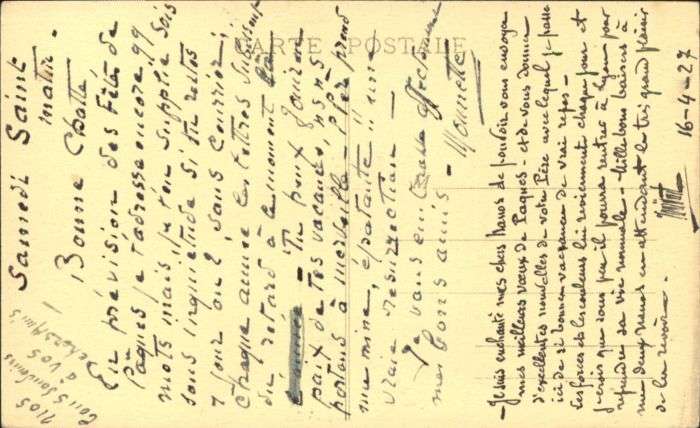 CARTE POSTALE
Samedi Saint
matin.
Bonne Chatte
En prévision des Fêtes de
Pâques je t'adresse encore qq
mots mais je t'en supplie sois
sans inquiétude si tu restes
1 jour ou 2 sans courrier,
chaque année les lettres subissent
du retard à ce moment là
Tu peux jouir en
paix de tes vacances, nous nous
portons à merveille, Père prend
une mine "épatante" : une
vraie résurrection —
Je vous embrasse affectueusement
mes bons amis —
Mounette
— Je suis enchanté mes chers francs de pouvoir vous envoyer
mes meilleurs vœux de Pâques — et de vous donner
d'excellentes nouvelles de votre Père avec lequel je passe
ici de si bonnes vacances de vrai repos —
Les forces et les couleurs lui reviennent chaque jour et
je crois que sous peu il pourra rentrer à Lyon pour
reprendre sa vie normale — Mille bons baisers à
mes deux francs en attendant le très grand plaisir
de les revoir.
16-4-27
Nos
bons souvenirs
à vos
chers amis